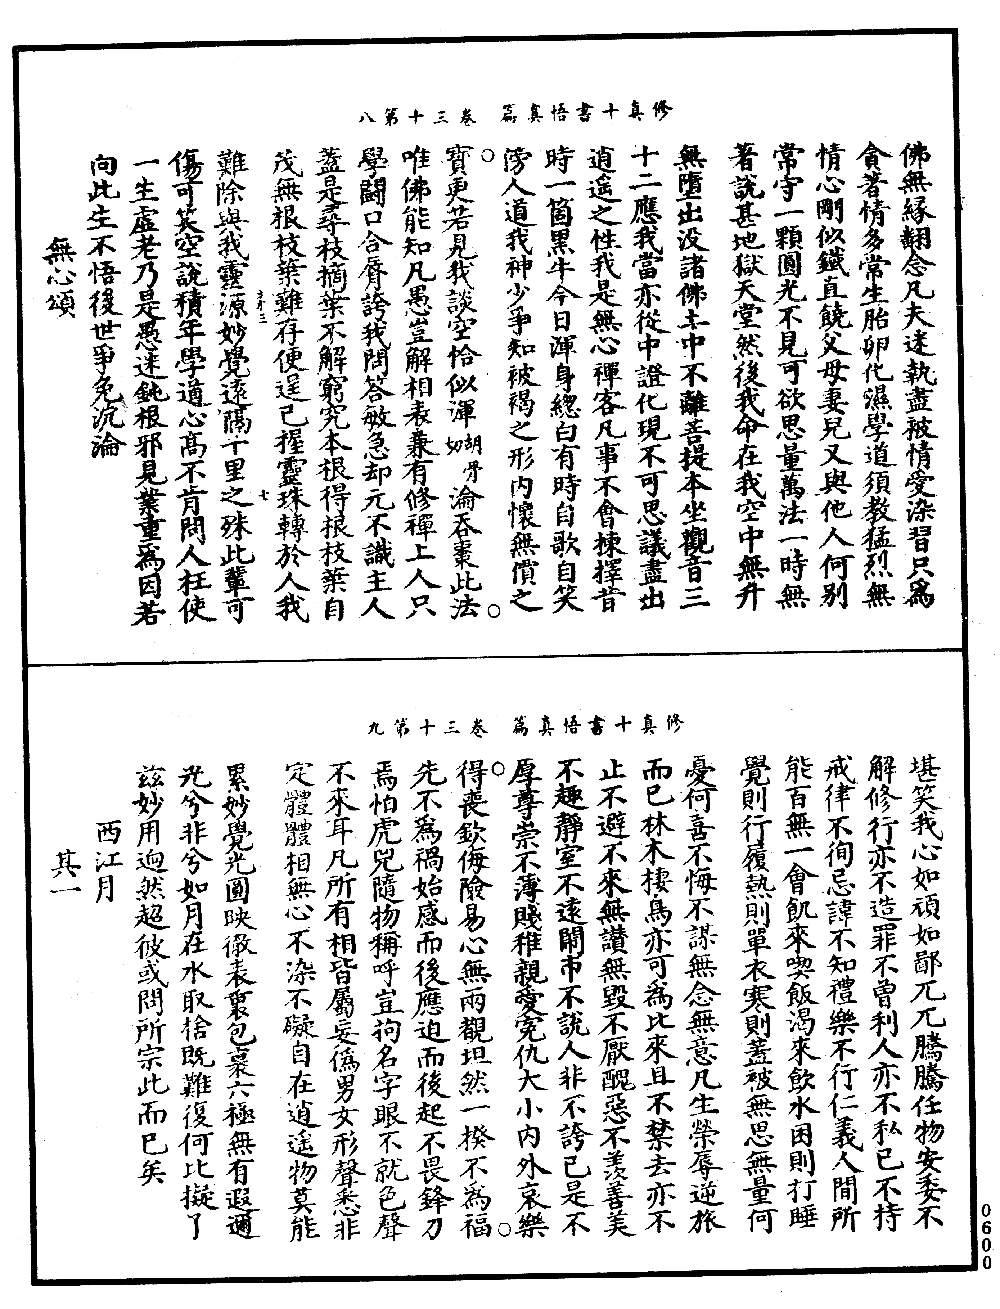 修真十書悟真篇　卷三十第八
佛無緣翻念凡夫迷執盡被情愛染習只爲
貪著情多常生胎卵化濕學道須教猛烈無
情心剛似鐵直饒父母妻兒又與他人何別
常守一顆圓光不見可欲思量萬法一時無
著說甚地獄天堂然後我命在我空中無升
無墮出没諸佛土中不離菩提本坐觀音三
十二應我當亦從中證化現不可思議盡出
逍遥之性我是無心禪客凡事不會揀擇昔
時一箇黑牛今日渾身總白有時自歌自笑
傍人道我神少爭知被褐之形内懷無價之
寶更若見我談空恰似渾胡骨切淪吞棗此法
唯佛能知凡愚豈解相表兼有修禪上人只
學鬬口合脣誇我問答敏急却元不識主人
蓋是尋枝摘葉不解窮究本根得根枝葉自
茂無根枝葉難存便逞已握靈珠轉於人我
難除與我靈源妙覺遠隔千里之殊此輩可
傷可笑空說積年學道心高不肯問人枉使
一生虚老乃是愚迷鈍根邪見業重爲因若
向此生不悟後世爭免沉淪
無心頌
修真十書悟真篇　卷三十第九
堪笑我心如頑如鄙兀兀騰騰任物安委不
解修行亦不造罪不曾利人亦不私已不持
戒律不徇忌諱不知禮樂不行仁義人間所
能百無一會飢來喫飯渴來飲水困則打睡
覺則行履熱則單衣寒則蓋被無思無量何
憂何喜不悔不謀無念無意凡生榮辱逆旅
而已林木棲鳥亦可爲比來且不禁去亦不
止不避不來無讃無毀不厭醜惡不羨善美
不趣静室不遠鬧市不說人非不誇已是不
厚尊崇不薄賤稚親愛寃仇大小内外哀樂
得喪欽侮險易心無兩觀坦然一揆不爲福
先不爲禍始感而後應迫而後起不畏鋒刀
焉怕虎兕隨物稱呼豈拘名字眼不就色聲
不來耳凡所有相皆屬妄僞男女形聲悉非
定體體相無心不染不礙自在逍遥物莫能
累妙覺光圓映徹表裏包裹六極無有遐邇
光兮非兮如月在水取捨既難復何比擬了
兹妙用迥然超彼或問所宗此而已矣
西江月
其一
0600